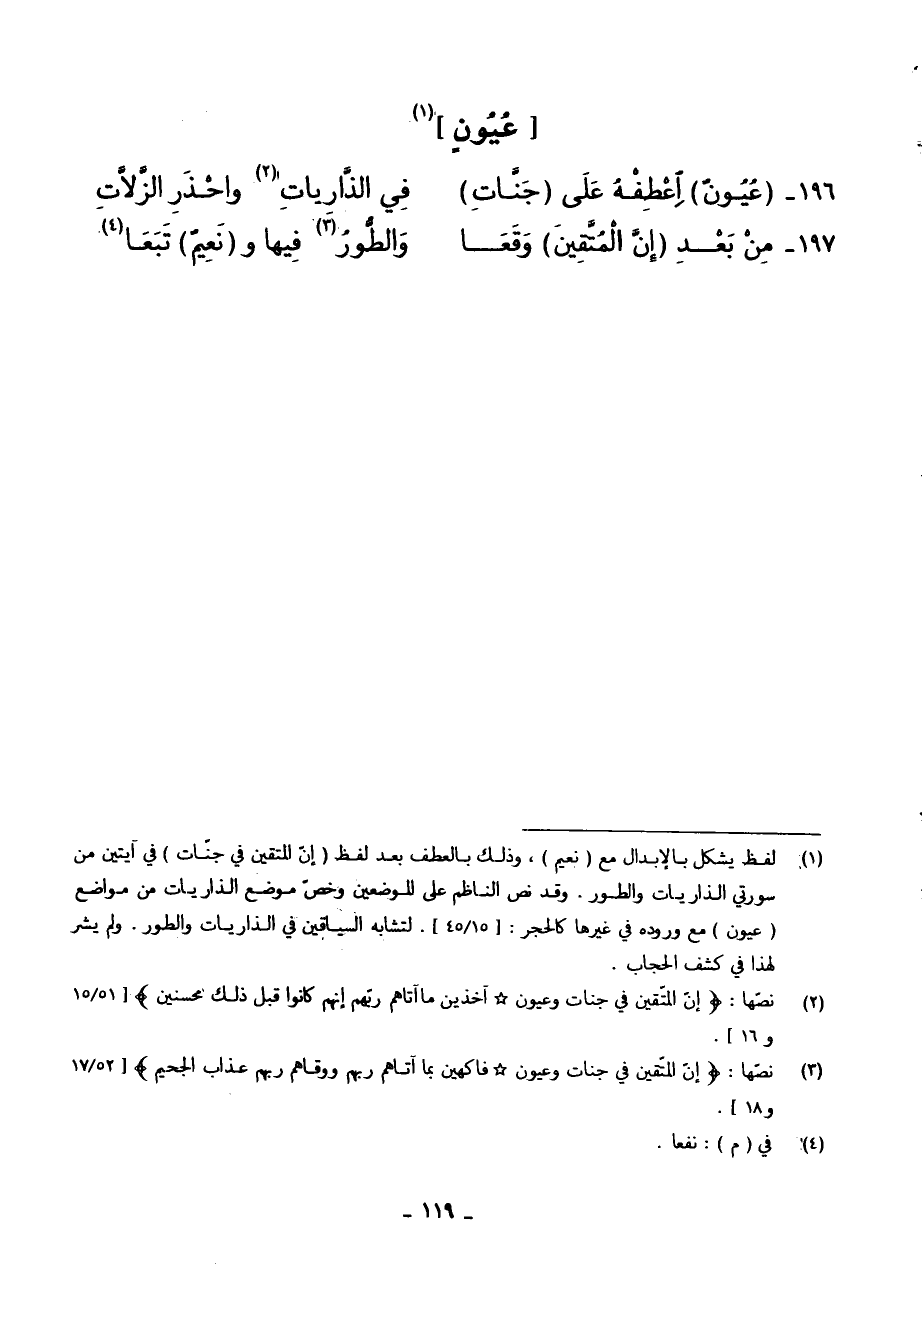 [ عُيُونٍ ](١)
١٩٦ـ (عُيُونٌ) اَعْطِفْهُ عَلَى (جَنَّاتِ) فِي الذَّارِيَاتِ(٢) واحْذَرِ الزَّلاَّتِ
١٩٧ـ مِنْ بَعْدِ (إِنَّ الْمُتَّقِينَ) وَقَعَا وَالطُّورُ(٣) فِيها و (نَعِيمٌ) تَبَعَا(٤)
(١) لفظ يشكل بالإبدال مع ( نعيم ) ، وذلك بالعطف بعد لفظ ( إنّ المتقين في جنّات ) في آيتين من
سورتي الذاريات والطور . وقد نص الناظم على الموضعين وخصّ موضع الذاريات من مواضع
( عيون ) مع وروده في غيرها كالحجر : [ ٤٥/١٥ ] . لتشابه السياقين في الذاريات والطور . ولم يشر
لهذا في كشف الحجاب .
(٢) نصّها : ﴿ إنّ المتّقين في جنات وعيون ☆ آخذين ماآتاهم ربّهم إنهم كانوا قبل ذلك محسنين ﴾ [ ١٥/٥١
و ١٦ ] .
(٣) نصّها : ﴿ إنّ المتّقين في جنات وعيون ☆ فاكهين بما آتاهم ربهم ووقاهم ربهم عذاب الجحيم ﴾ [ ١٧/٥٢
و١٨ ] .
(٤) في ( م ) : نفعا .
ـ ١١٩ ـ